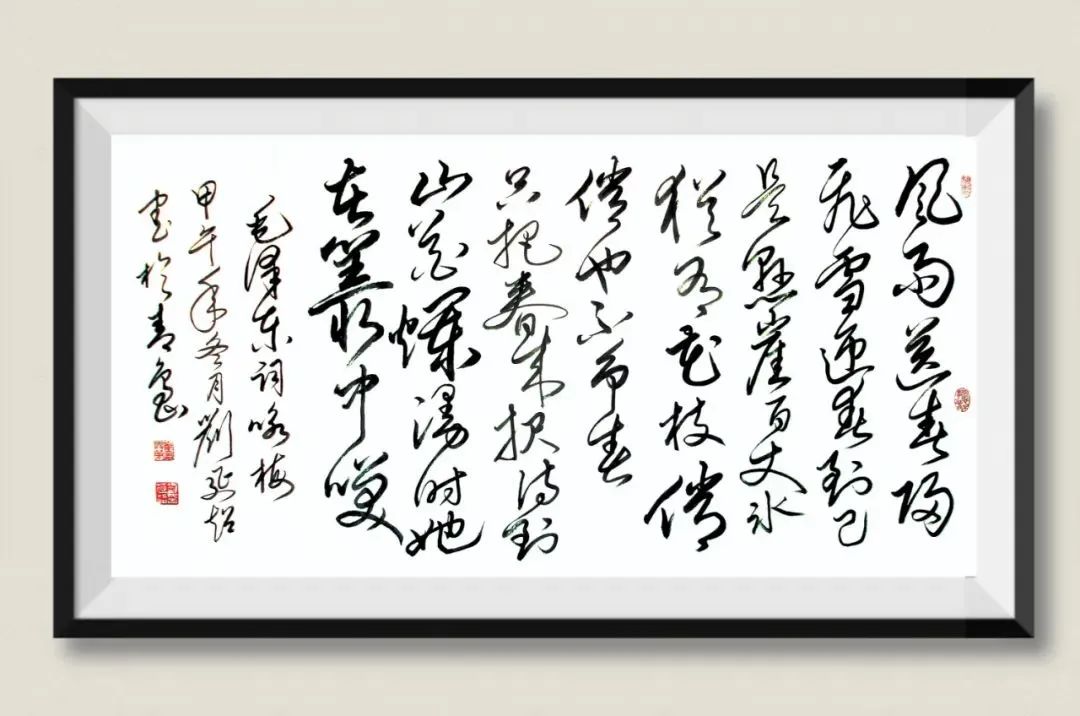 风雨送春归
飛雪迎春到已
是懸崖百丈冰
犹有花枝俏
俏也不争春
只把春来报待到
山花爛漫时她
在叢中笑
毛泽东词咏梅
甲午年冬月劉延超
书於青島